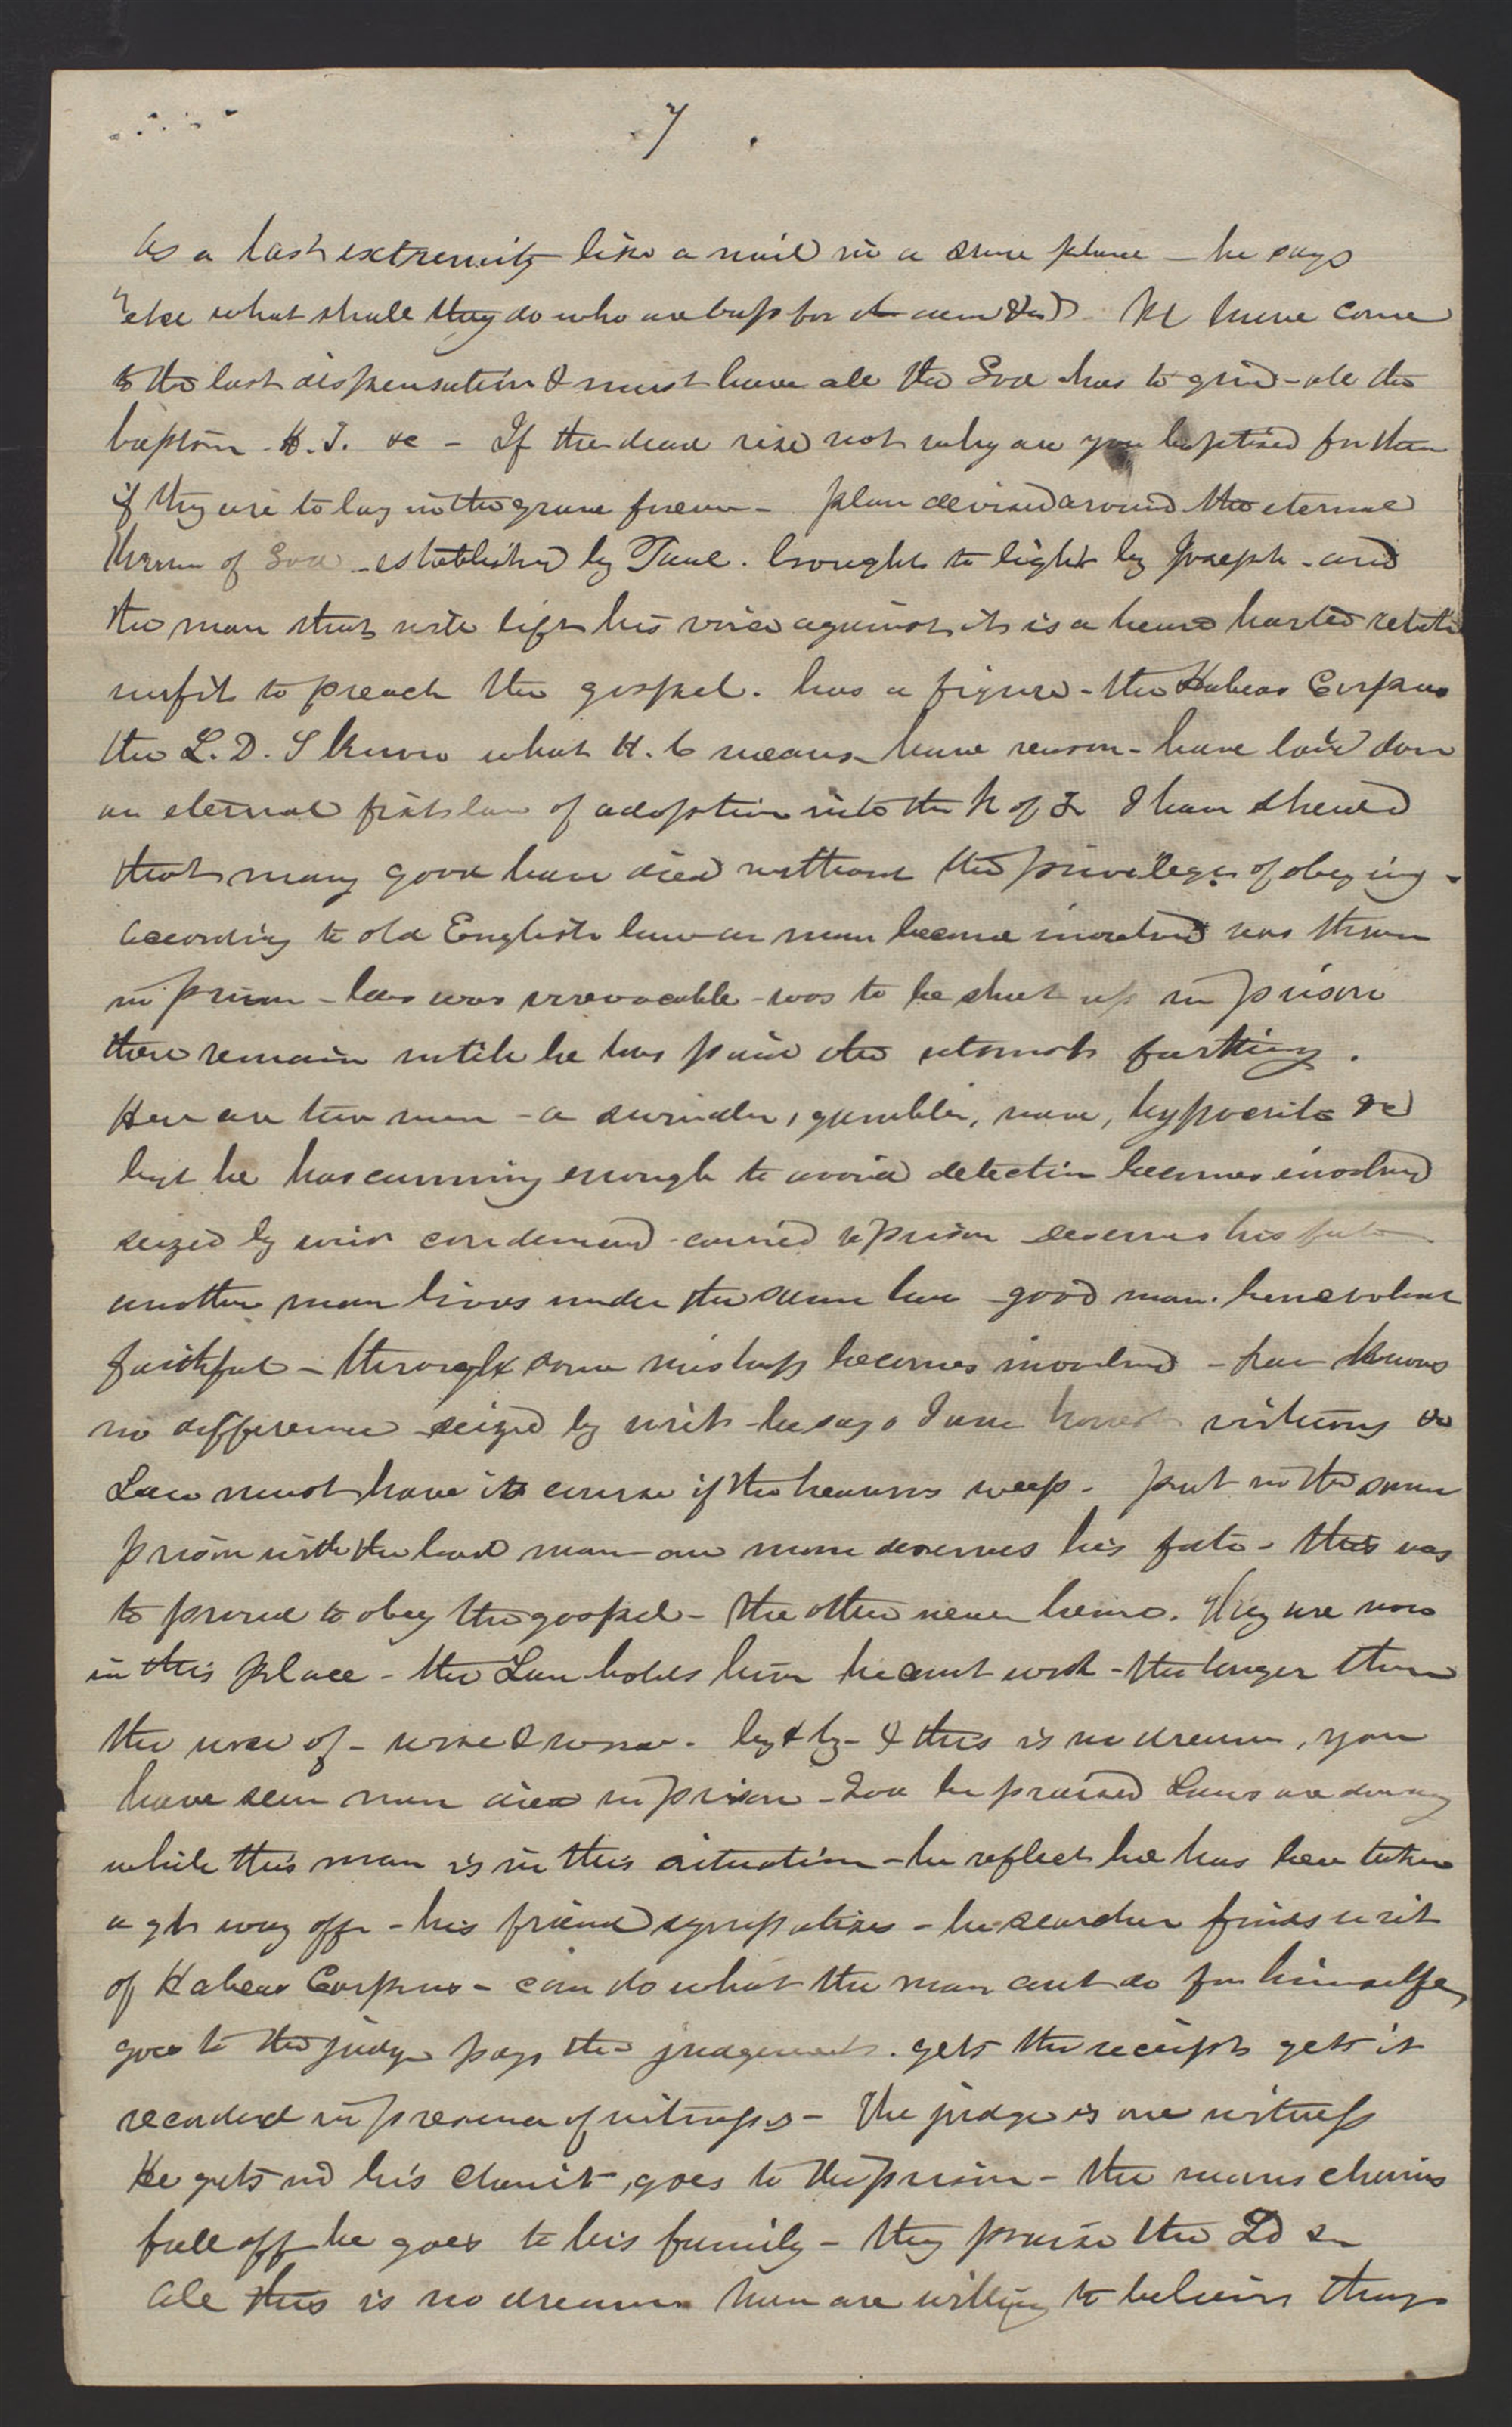 7
As a last extremity like a nail in a sure place – he says
"else what shall they do who are bap for the dead We have come
to the last dispensation & must have all the God has to give – all the
baptism – H. G. &c – If the dead rise not why are you baptised for them
if they are to lay in the grave forever – plan devised around the eternal
throne of God – established by Paul . brought to light by Joseph – and
the man that will lift his voice against it is a hard harted
unfit to preach the gospel . has a figure – the Habeas Corpus
the L. D. S know what H. C means have reason – have laid down
an eternal law of adoption into the K of G I have shewed
that many good have died without the privilege of obeying –
According to old English law a man became involved was thrown
in prison – law was irrevocable – was to be shut up in prison
there remain until he has paid the utmost farthing .
Here are two men – a swindler, gambler, knave, hyppocrite &c
but he has cunning enough to avoid detection becomes involved
seized by writ condemned – carried to prison deserves his fate
another man lives under the same law – good man . benevolent
faithful – through some mishap becomes involved – law knows
no difference seized by writ – he says I am honest virtuous &c
Law must have its course if the heavens weep – put in the same
prison with the bad man – one man deserves his fate – this was
to proud to obey the gospel – the other never heard. They are now
in this place – the Law holds him he cant work – the longer there
the worse off – worse & worse – by & by – & this is no dream, you
have seen men died in prison – God be praised Laws are
while this man is in this situation – he reflect he has been taken
a gt way off – his friend sympatises – he searches finds writ
of Habeas Corpus – can do what the man cant do for himselfe,
goes to the judge pays the judgement . gets the receipt gets it
recorded in presence of witnesses – The judge is one witness
He gets in his Chariot, goes to the prison – the mans chains
fall off he goes to his family – they praise the Ld &c
All this is no dream men are willing to believe things